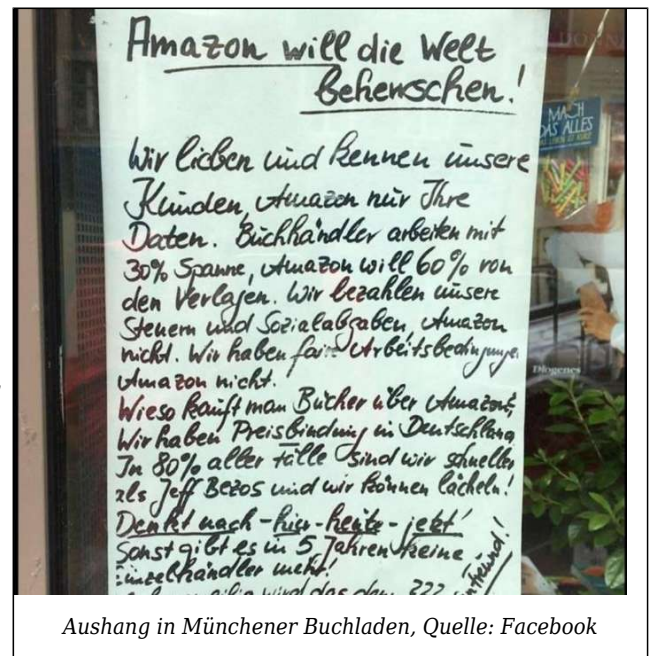 Amazon will die Welt
beherrschen!
Wir lieben und kennen unsere
Kunden, Amazon nur Ihre
Daten. Buchhändler arbeiten mit
30% Spanne, Amazon will 60% von
den Verlagen. Wir bezahlen unsere
Steuern und Sozialabgaben, Amazon
nicht. Wir haben faire Arbeitsbedingunge
Amazon nicht.
Wieso kauft man Bücher über Amazon?,
Wir haben Preisbindung in Deutschland
In 80% aller Fälle sind wir schneller
als Jeff Bezos und wir können lächeln!
Denkt nach - hier - heute - jetzt!
Sonst gibt es in 5 Jahren keine
Einzelhändler mehr!
wird das dem ???
MACH
DAS ALLES
Diogenes
Aushang in Münchener Buchladen, Quelle: Facebook